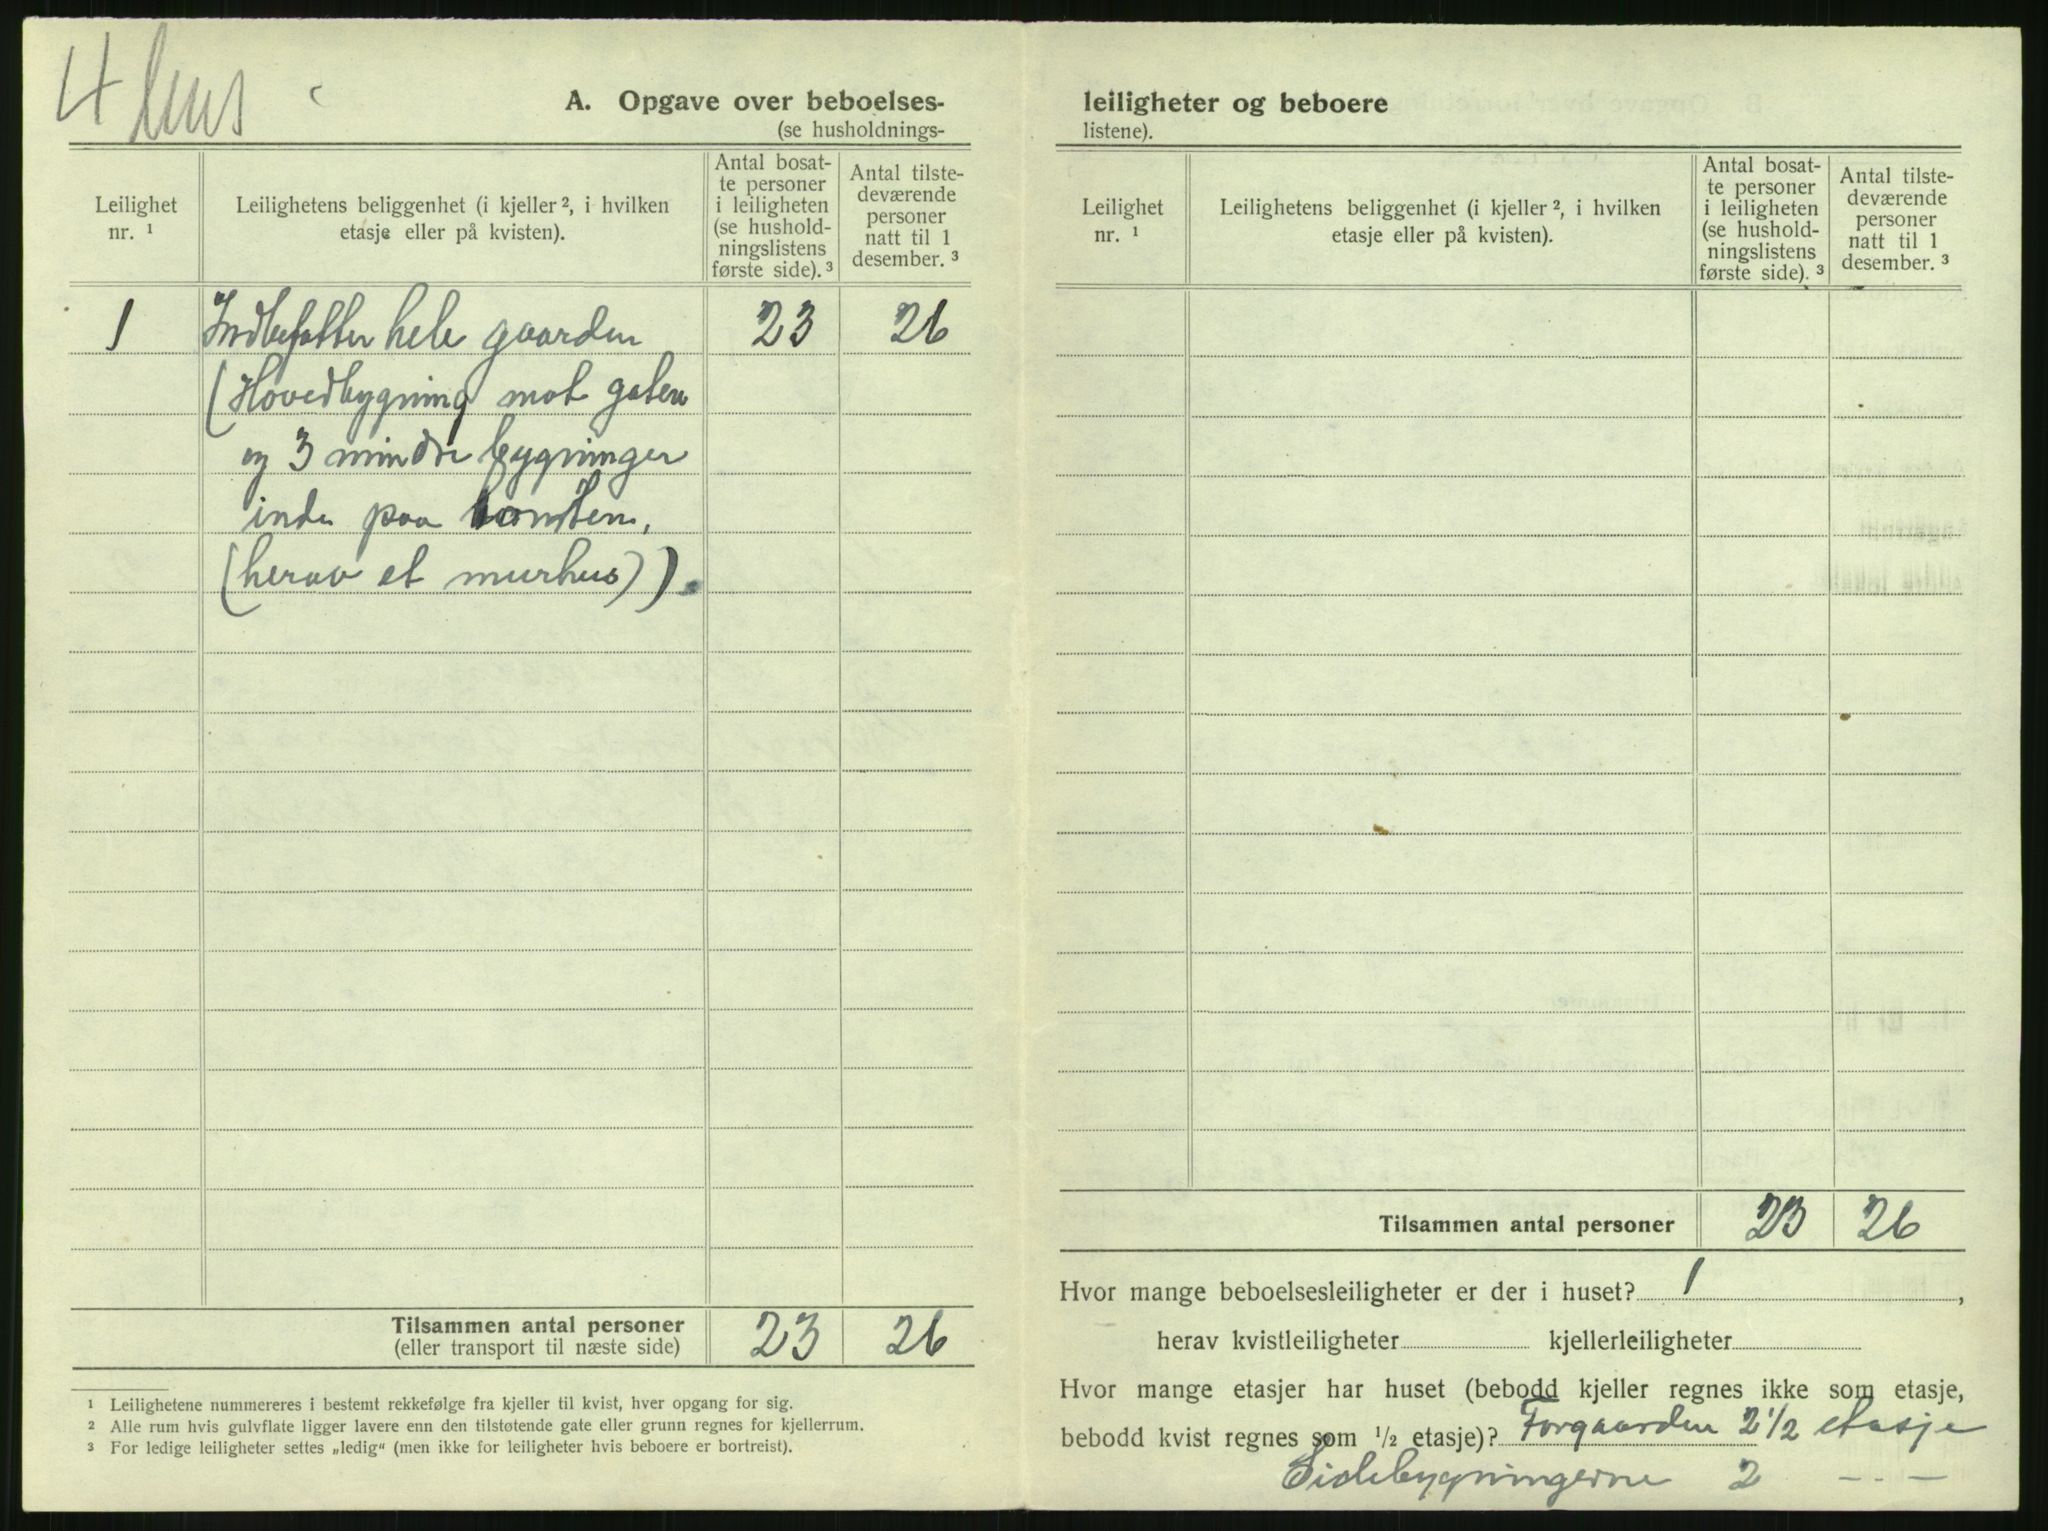 4 hus
A. Opgave over beboelses-
(se husholdnings-
Leilighet
nr. ¹
Leilighetens beliggenhet (i kjeller ², i hvilken
etasje eller på kvisten).
Antal bosat-
te personer
i leiligheten
(se hushold-
ningslistens
første side). ³
Antal tilste-
deværende
personer
natt til 1
desember. ³
1 Indbefatter hele gaarden 23 26
(Hovedbygning mot gaten
og 3 mindre bygninger
inde paa tomten,
(herav et murhus)).
Tilsammen antal personer 23 26
(eller transport til næste side)
¹ Leilighetene nummereres i bestemt rekkefølge fra kjeller til kvist, hver opgang for sig.
² Alle rum hvis gulvflate ligger lavere enn den tilstøtende gate eller grunn regnes for kjellerrum.
³ For ledige leiligheter settes „ledig“ (men ikke for leiligheter hvis beboere er bortreist).
leiligheter og beboere
listene).
Leilighet
nr. ¹
Leilighetens beliggenhet (i kjeller ², i hvilken
etasje eller på kvisten).
Antal bosat-
te personer
i leiligheten
(se hushold-
ningslistens
første side). ³
Antal tilste-
deværende
personer
natt til 1
desember. ³
Tilsammen antal personer 23 26
Hvor mange beboelsesleiligheter er der i huset? 1,
herav kvistleiligheter kjellerleiligheter
Hvor mange etasjer har huset (bebodd kjeller regnes ikke som etasje,
bebodd kvist regnes som ½ etasje)? Forgaarden 2 1/2 etasje
Sidebygningerne 2 — - —